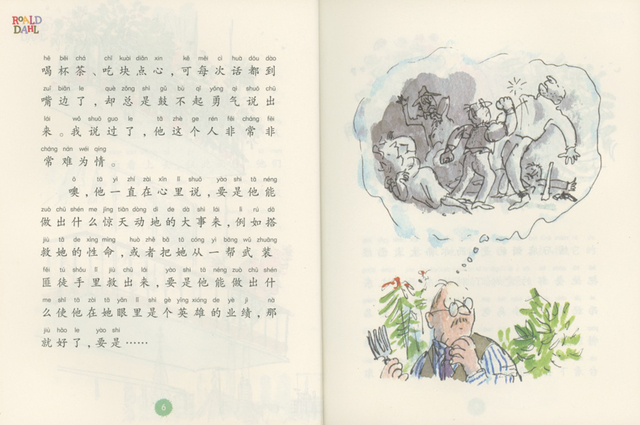 ROALD
DAHL
hē bēi chá chī kuài diǎn xin kě měi cì huà dōu dào
喝杯茶、吃块点心,可每次话都到
zuǐ biān le què zǒng shì gǔ bù qǐ yǒng qì shuō chū
嘴边了,却总是鼓不起勇气说出
lái wǒ shuō guo le tā zhè ge rén fēi cháng fēi
来。我说过了,他这个人非常非
cháng nán wéi qíng
常难为情。
ō tā yì zhí zài xīn lǐ shuō yào shi tā néng
噢,他一直在心里说,要是他能
zuò chū shén me jīng tiān dòng dì de dà shì lái lì rú dā
做出什么惊天动地的大事来,例如搭
jiù tā de xìng mìng huò zhě bǎ tā cóng yì bāng wǔ zhuāng
救她的性命,或者把她从一帮武装
fěi tú shǒu lǐ jiù chū lái yào shi tā néng zuò chū shén
匪徒手里救出来,要是他能做出什
me shǐ tā zài tā yǎn lǐ shì gè yīng xióng de yè jì nà
么使他在她眼里是个英雄的业绩,那
jiù hǎo le yào shi
就好了,要是……
6